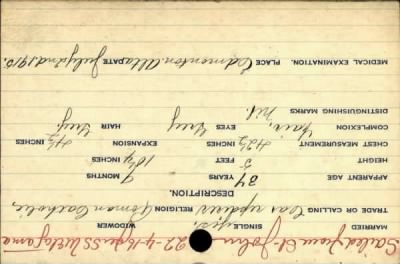 Sailed from St. John 22-4-16 per SS Metagama
MARRIED SINGLE Yes. WIDOWER
TRADE OR CALLING RELIGION Roman Catholic.
DESCRIPTION.
APPARENT AGE 34 YEARS 9 MONTHS
HEIGHT 5 FEET 10¼ INCHES
CHEST MEASUREMENT 42½ INCHES EXPANSION 4½ INCHES
COMPLEXION Fair, EYES Grey HAIR Grey.
DISTINGUISHING MARKS Nil.
MEDICAL EXAMINATION. PLACE Edmonton Alta DATE July 2nd 1915.